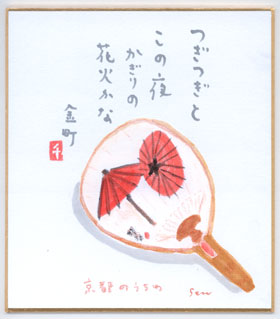 つぎつぎと
この夜
かぎりの
花火かな
金町
千
京都のうちわ
sen